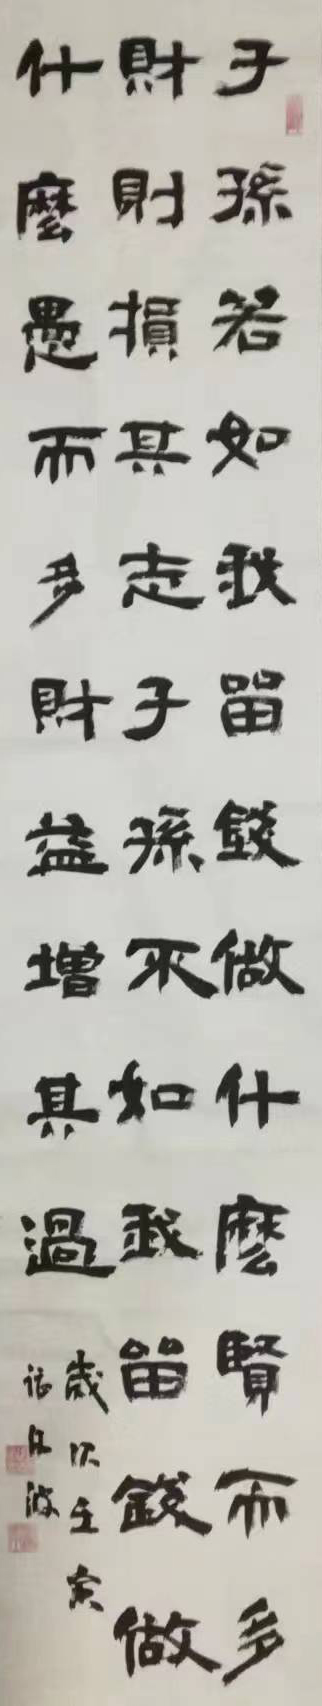 子孫若如我留錢做什麽賢而多
財則損其志子孫不如我留錢做
什麽愚而多財益增其過
歲次壬寅